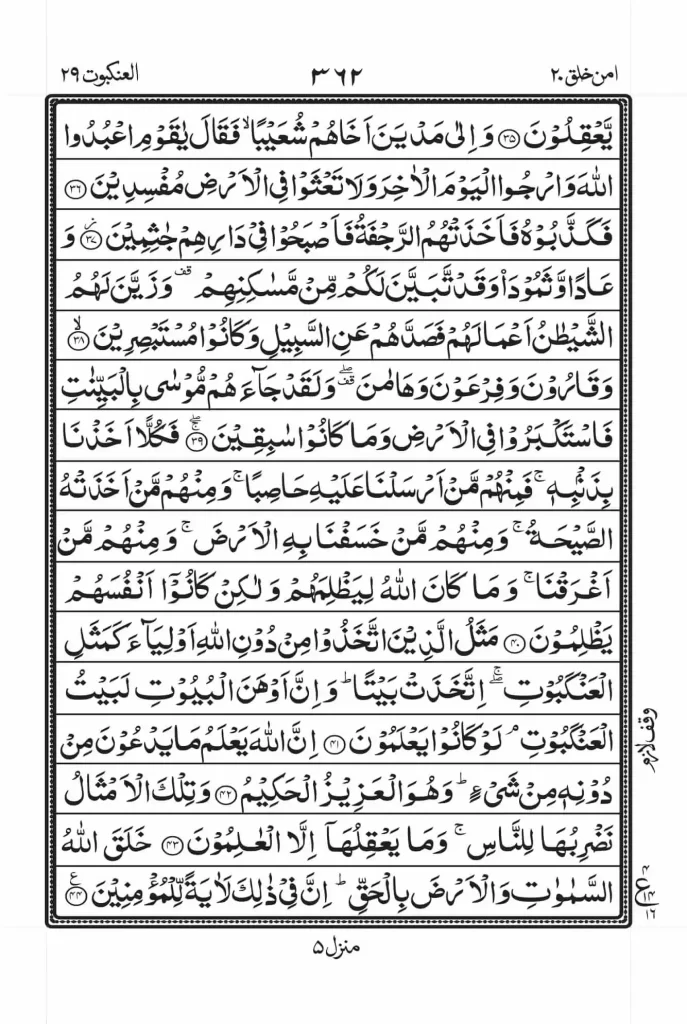 امن خلق ۲۰ ۳۶۲ العنكبوت ۲۹
يَّعْقِلُوْنَ ﴿۳۵﴾ وَ اِلٰى مَدْيَنَ اَخَاهُمْ شُعَيْبًا ۙ فَقَالَ يٰقَوْمِ اعْبُدُوا
اللّٰهَ وَ ارْجُوا الْيَوْمَ الْاٰخِرَ وَ لَا تَعْثَوْا فِى الْاَرْضِ مُفْسِدِيْنَ ﴿۳۶﴾
فَكَذَّبُوْهُ فَاَخَذَتْهُمُ الرَّجْفَةُ فَاَصْبَحُوْا فِىْ دَارِهِمْ جٰثِمِيْنَ ﴿۳۷﴾ وَ
عَادًا وَّ ثَمُوْدَا۠ وَ قَدْ تَّبَيَّنَ لَكُمْ مِّنْ مَّسٰكِنِهِمْ قف وَ زَيَّنَ لَهُمُ
الشَّيْطٰنُ اَعْمَالَهُمْ فَصَدَّهُمْ عَنِ السَّبِيْلِ وَ كَانُوْا مُسْتَبْصِرِيْنَ ۙ ﴿۳۸﴾
وَ قَارُوْنَ وَ فِرْعَوْنَ وَ هَامٰنَ قف وَ لَقَدْ جَآءَهُمْ مُّوْسٰى بِالْبَيِّنٰتِ
فَاسْتَكْبَرُوْا فِى الْاَرْضِ وَ مَا كَانُوْا سٰبِقِيْنَ ﴿۳۹﴾ فَكُلًّا اَخَذْنَا
بِذَنْۢبِهٖ ۚ فَمِنْهُمْ مَّنْ اَرْسَلْنَا عَلَيْهِ حَاصِبًا ۚ وَ مِنْهُمْ مَّنْ اَخَذَتْهُ
الصَّيْحَةُ ۚ وَ مِنْهُمْ مَّنْ خَسَفْنَا بِهِ الْاَرْضَ ۚ وَ مِنْهُمْ مَّنْ
اَغْرَقْنَا ۚ وَ مَا كَانَ اللّٰهُ لِيَظْلِمَهُمْ وَ لٰكِنْ كَانُوْۤا اَنْفُسَهُمْ
يَظْلِمُوْنَ ﴿۴۰﴾ مَثَلُ الَّذِيْنَ اتَّخَذُوْا مِنْ دُوْنِ اللّٰهِ اَوْلِيَآءَ كَمَثَلِ
الْعَنْكَبُوْتِ ۖۚ اِتَّخَذَتْ بَيْتًا ؕ وَ اِنَّ اَوْهَنَ الْبُيُوْتِ لَبَيْتُ
الْعَنْكَبُوْتِ ۘ لَوْ كَانُوْا يَعْلَمُوْنَ ﴿۴۱﴾ اِنَّ اللّٰهَ يَعْلَمُ مَا يَدْعُوْنَ مِنْ
وقف لازم
دُوْنِهٖ مِنْ شَىْءٍ ؕ وَ هُوَ الْعَزِيْزُ الْحَكِيْمُ ﴿۴۲﴾ وَ تِلْكَ الْاَمْثَالُ
نَضْرِبُهَا لِلنَّاسِ ۚ وَ مَا يَعْقِلُهَاۤ اِلَّا الْعٰلِمُوْنَ ﴿۴۳﴾ خَلَقَ اللّٰهُ
السَّمٰوٰتِ وَ الْاَرْضَ بِالْحَقِّ ؕ اِنَّ فِىْ ذٰلِكَ لَاٰيَةً لِّلْمُؤْمِنِيْنَ ﴿۴۴﴾ ع
۴
ع ۱۴
۱۶
منزل ۵